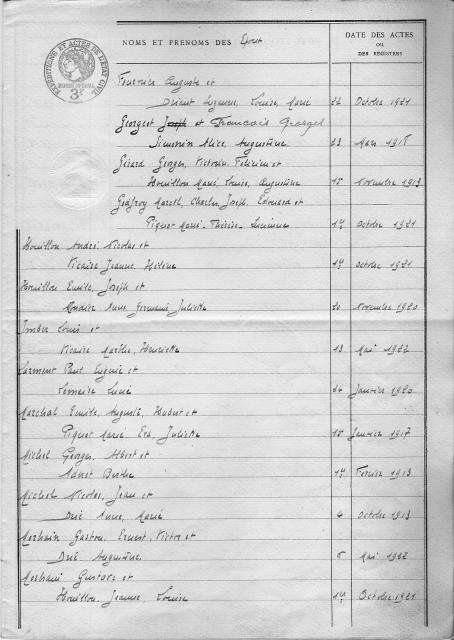 EXPEDITIONS ET ACTES DE L'ETAT CIVIL
3F
NOMS ET PRENOMS DES Epoux
DATE DES ACTES
OU
DES REGISTRES
Auguste et
Louise, Marie 22 Octobre 1921
Georgest Joseph et Francois Graegel
Simonin Alice, Augustine 23 Mars 1918
Gérard Georges, Victorin Félicien et
Houillon Marie, Louise, Augustine 15 Novembre 1913
Godfroy Marcel, Charles, Joseph, Edouard et
Piquot Marie-Thérèse-Lucienne 14 Octobre 1921
Houillon André Nicolas et
Vicaire Jeanne, Hélène 14 Octobre 1921
Houillon Emile, Joseph et
Anne, Germaine Juliette 20 Novembre 1920
Imber Louis et
Vicaire Marthe, Henriette 13 Mai 1922
Larment Paul Eugène et
Lemaire Lucie 24 Janvier 1920
Marchal Emile, Auguste, Hubert et
Piquot Marie Eva, Juliette 15 Janvier 1917
Michel Georges, Albert et
Adnet Berthe 14 Fevrier 1913
Michel Nicolas, Jean et
Anne, Marie 4 Octobre 1913
Gaston, Ernest, Victor et
Augustine 6 Mai 1922
Gustave et
Houillon, Jeanne, Louise 14 Octobre 1921